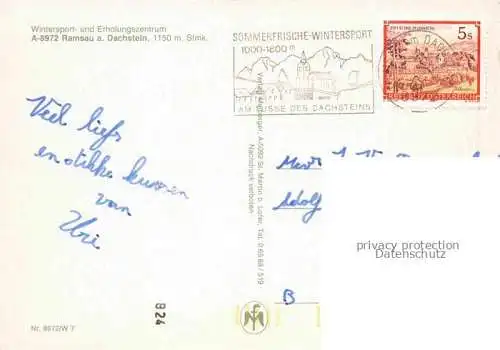 Wintersport- und Erholungszentrum
A-8972 Ramsau a. Dachstein, 1150 m, Stmk.
SOMMERFRISCHE-WINTERSPORT
1000-1800 m
AM FUSSE DES DACHSTEINS
5 S
REPUBLIK ÖSTERREICH
Viel liefs
en stille kussen
van
Adolf
B
A-5092 St. Martin b. Lofer, Tel. 0 65 88 / 519
Nachdruck verboten
privacy protection
Danke. Merci. Thanks.
824
Nr. 8972/W 7